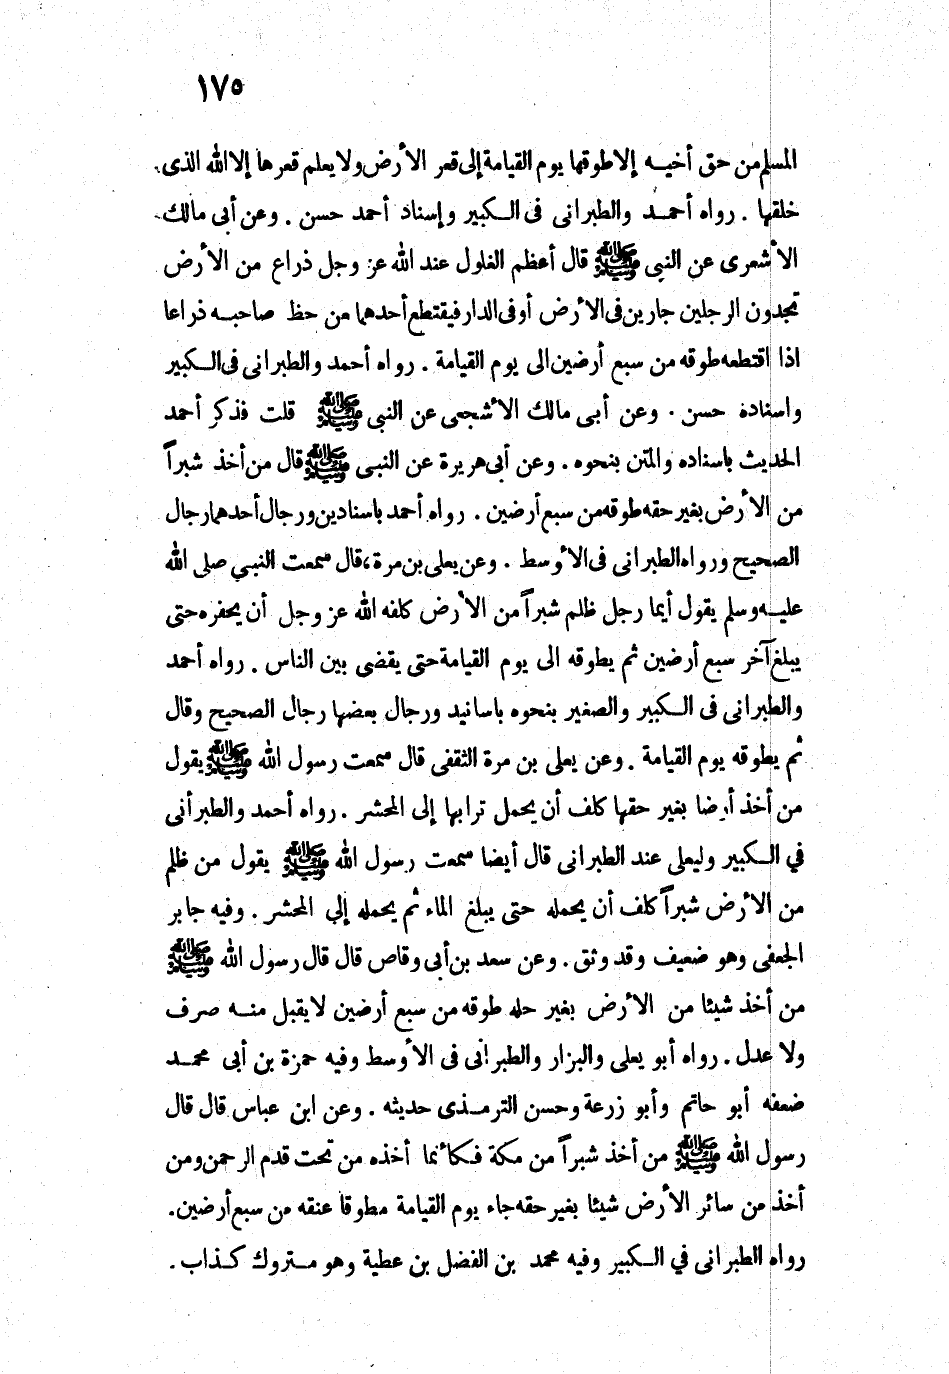 ١٧٥
المسلم من حق أخيه إلا طوقها يوم القيامة إلى قعر الأرض ولا يعلم قعرها إلا الله الذى
خلقها . رواه أحمد والطبرانى فى الكبير وإسناد أحمد حسن . وعن أبى مالك
الأشعرى عن النبى ﷺ قال أعظم الغلول عند الله عز وجل ذراع من الأرض
تجدون الرجلين جارين فى الأرض أو فى الدار فيقتطع أحدهما من حظ صاحبه ذراعا
اذا اقتطعه طوقه من سبع أرضين الى يوم القيامة . رواه أحمد والطبرانى فى الكبير
واسناده حسن . وعن أبى مالك الأشجعى عن النبى ﷺ قلت فذكر أحمد
الحديث باسناده والمتن بنحوه . وعن أبى هريرة عن النبى ﷺ قال من أخذ شبراً
من الأرض بغير حقه طوقه من سبع أرضين . رواه أحمد باسنادين ورجال أحدهما رجال
الصحيح ورواه الطبرانى فى الأوسط . وعن يعلى بن مرة ، قال سمعت النبى صلى الله
عليه وسلم يقول أيما رجل ظلم شبراً من الأرض كلفه الله عز وجل أن يحفره حتى
يبلغ آخر سبع أرضين ثم يطوقه الى يوم القيامة حتى يقضى بين الناس . رواه أحمد
والطبرانى فى الكبير والصغير بنحوه باسانيد ورجال بعضها رجال الصحيح وقال
ثم يطوقه يوم القيامة . وعن يعلى بن مرة الثقفى قال سمعت رسول الله ﷺ يقول
من أخذ أرضا بغير حقها كلف أن يحمل ترابها إلى المحشر . رواه أحمد والطبرانى
في الكبير وليعلى عند الطبرانى قال أيضا سمعت رسول الله ﷺ يقول من ظلم
من الأرض شبراً كلف أن يحمله حتى يبلغ الماء ثم يحمله إلى المحشر . وفيه جابر
الجعفى وهو ضعيف وقد وثق . وعن سعد بن أبى وقاص قال قال رسول الله ﷺ
من أخذ شيئا من الأرض بغير حله طوقه من سبع أرضين لا يقبل منه صرف
ولا عدل . رواه أبو يعلى والبزار والطبرانى فى الأوسط وفيه حمزة بن أبى محمد
ضعفه أبو حاتم وأبو زرعة وحسن الترمذى حديثه . وعن ابن عباس قال قال
رسول الله ﷺ من أخذ شبراً من مكة فكأنما أخذه من تحت قدم الرحمن ومن
أخذ من سائر الأرض شيئا بغير حقه جاء يوم القيامة مطوقا عنقه من سبع أرضين .
رواه الطبرانى في الكبير وفيه محمد بن الفضل بن عطية وهو متروك كذاب .